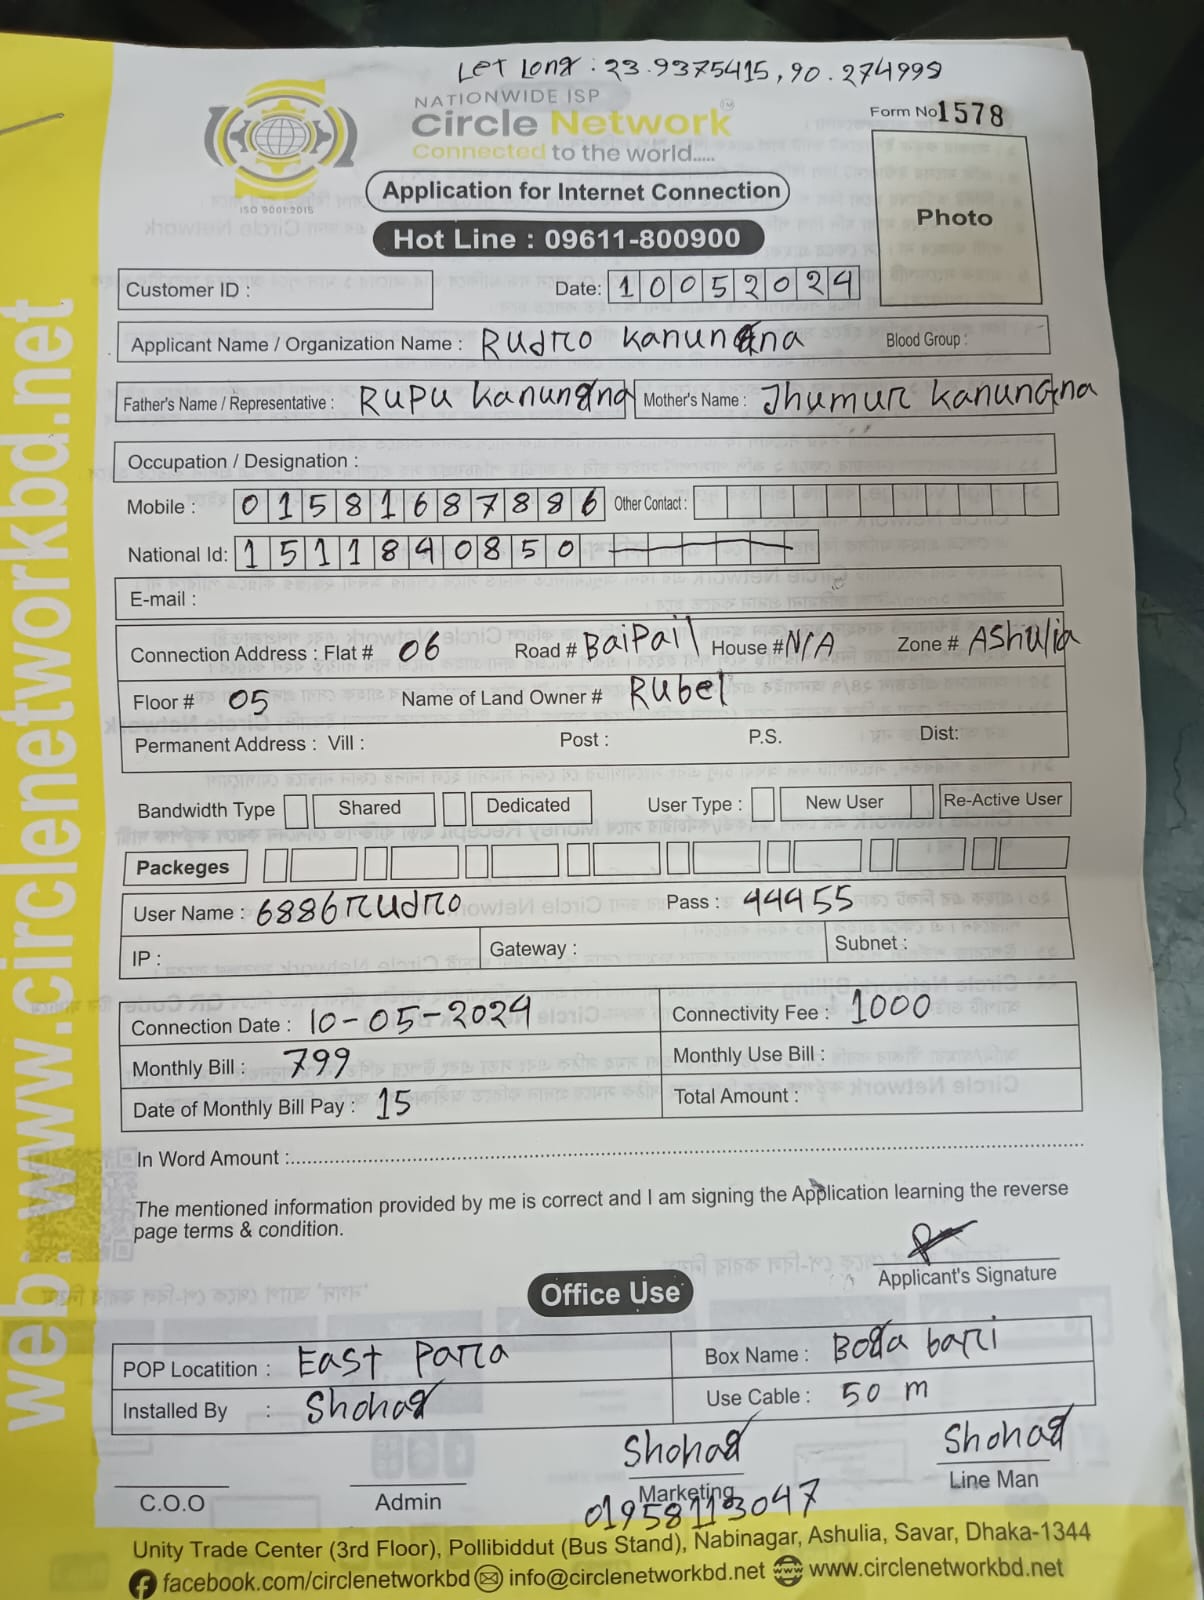 Let Long : 23.9375415, 90.274999
NATIONWIDE ISP
Circle Network
TM
Connected to the world.....
ISO 9001:2015
Form No 1578
Application for Internet Connection
Photo
Hot Line : 09611-800900
Customer ID :
Date: 10052024
Applicant Name / Organization Name : Rudro Kanungna Blood Group :
Father's Name / Representative : Rupu Kanungna Mother's Name : Jhumur Kanungna
Occupation / Designation :
Mobile : 01581687886 Other Contact :
National Id: 1511840850
E-mail :
Connection Address : Flat # 06 Road # BaiPail House # N/A Zone # Ashulia
Floor # 05 Name of Land Owner # Rubel
Permanent Address : Vill : Post : P.S. Dist:
Bandwidth Type Shared Dedicated User Type : New User Re-Active User
Packeges
User Name : 6886rudro Pass : 44455
IP : Gateway : Subnet :
Connection Date : 10-05-2024 Connectivity Fee : 1000
Monthly Bill : 799 Monthly Use Bill :
Date of Monthly Bill Pay : 15 Total Amount :
In Word Amount :
The mentioned information provided by me is correct and I am signing the Application learning the reverse
page terms & condition.
Applicant's Signature
Office Use
POP Locatition : East Para Box Name : Boda bari
Installed By : Shohag Use Cable : 50 m
Shohag Shohag
C.O.O Admin Marketing Line Man
01958113047
Unity Trade Center (3rd Floor), Pollibiddut (Bus Stand), Nabinagar, Ashulia, Savar, Dhaka-1344
facebook.com/circlenetworkbd info@circlenetworkbd.net www.circlenetworkbd.net
web: www.circlenetworkbd.net